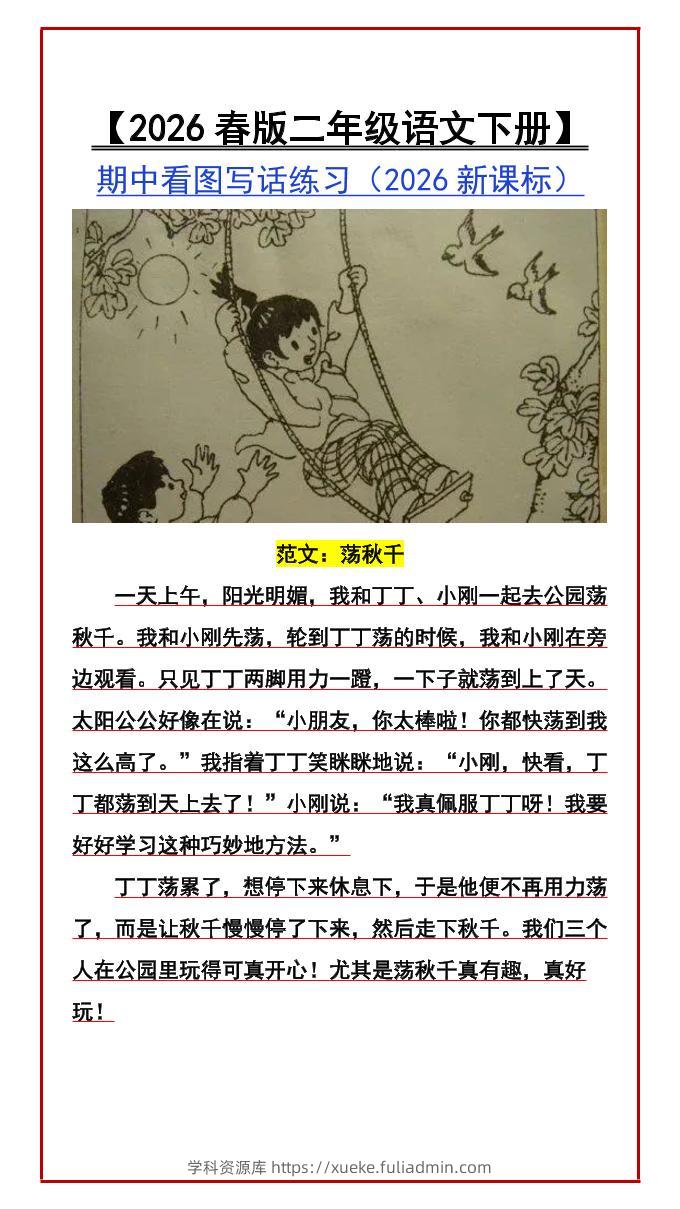 【2026春版二年级语文下册】
期中看图写话练习（2026新课标）
范文：荡秋千
一天上午，阳光明媚，我和丁丁、小刚一起去公园荡
秋千。我和小刚先荡，轮到丁丁荡的时候，我和小刚在旁
边观看。只见丁丁两脚用力一蹬，一下子就荡到上了天。
太阳公公好像在说：“小朋友，你太棒啦！你都快荡到我
这么高了。”我指着丁丁笑眯眯地说：“小刚，快看，丁
丁都荡到天上去了！”小刚说：“我真佩服丁丁呀！我要
好好学习这种巧妙地方法。”
丁丁荡累了，想停下来休息下，于是他便不再用力荡
了，而是让秋千慢慢停了下来，然后走下秋千。我们三个
人在公园里玩得可真开心！尤其是荡秋千真有趣，真好
玩！
学科资源库 https://xueke.fuliadmin.com